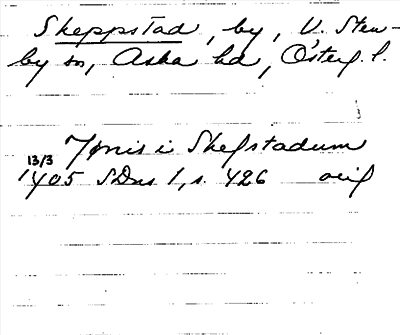 Skeppstad, by, V. Sten-
by sn, Aska hd, Österg. l.
Tønis i Skepstadum
13/3
1405 SDns 1, s. 426 orig